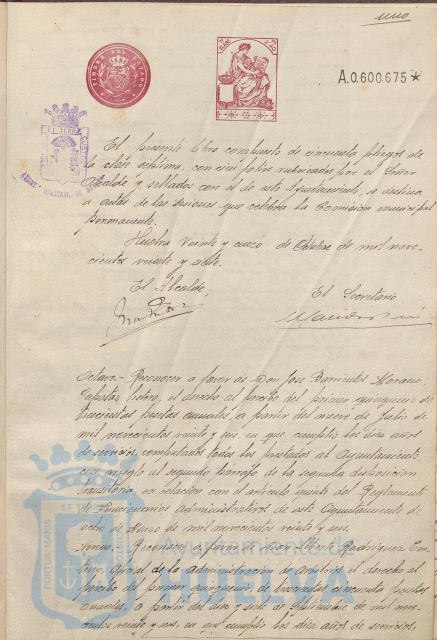 uno
TIMBRE DEL ESTADO
A.0.600.675★
El presente libro compuesto de cincuenta pliegos de
la clase séptima, con cien folios rubricados por el Señor
Alcalde y sellados con el de este Ayuntamiento, se destina
a actas de las sesiones que celebra la Comisión municipal
permanente.
Huelva Veinte y cinco de Octubre de mil nove-
cientos veinte y siete.
El Alcalde
El Secretario
Octavo.- Reconocer a favor de Don José Barrientos Moreno,
el derecho al percibo del primer quinquenio de
trescientas pesetas anuales, a partir del nueve de Julio de
mil novecientos veinte y seis, en que cumplió los diez años
de servicios, computados todos los prestados al Ayuntamiento
con arreglo al segundo párrafo de la segunda disposición
transitoria en relación con el artículo quinto del Reglamento
de Funcionarios Administrativos de este Ayuntamiento de
ocho de Marzo de mil novecientos veinte y seis.
Noveno. Reconocer a favor de Rodríguez
Oficial de la Administración de Arbitrios el derecho al
percibo del primer quinquenio, de trescientas cincuenta pesetas
anuales, a partir del diez y siete de Septiembre de mil nove-
cientos veinte y seis, en que cumplió los diez años de servicios,
PORTUS MARIS
ET TERRE
Ayuntamiento de
HUELVA